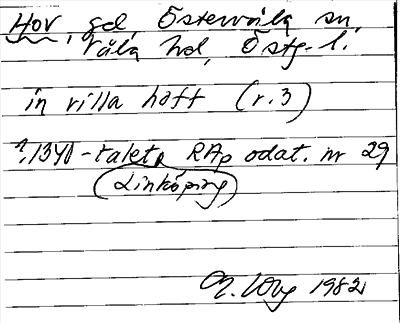 Hov, gd, Östervåla sn,
Våla hd, Östg. l.
in villa höff (r. 3)
?, 1340-talet, RAp odat. nr 29
(Linköping)
1982